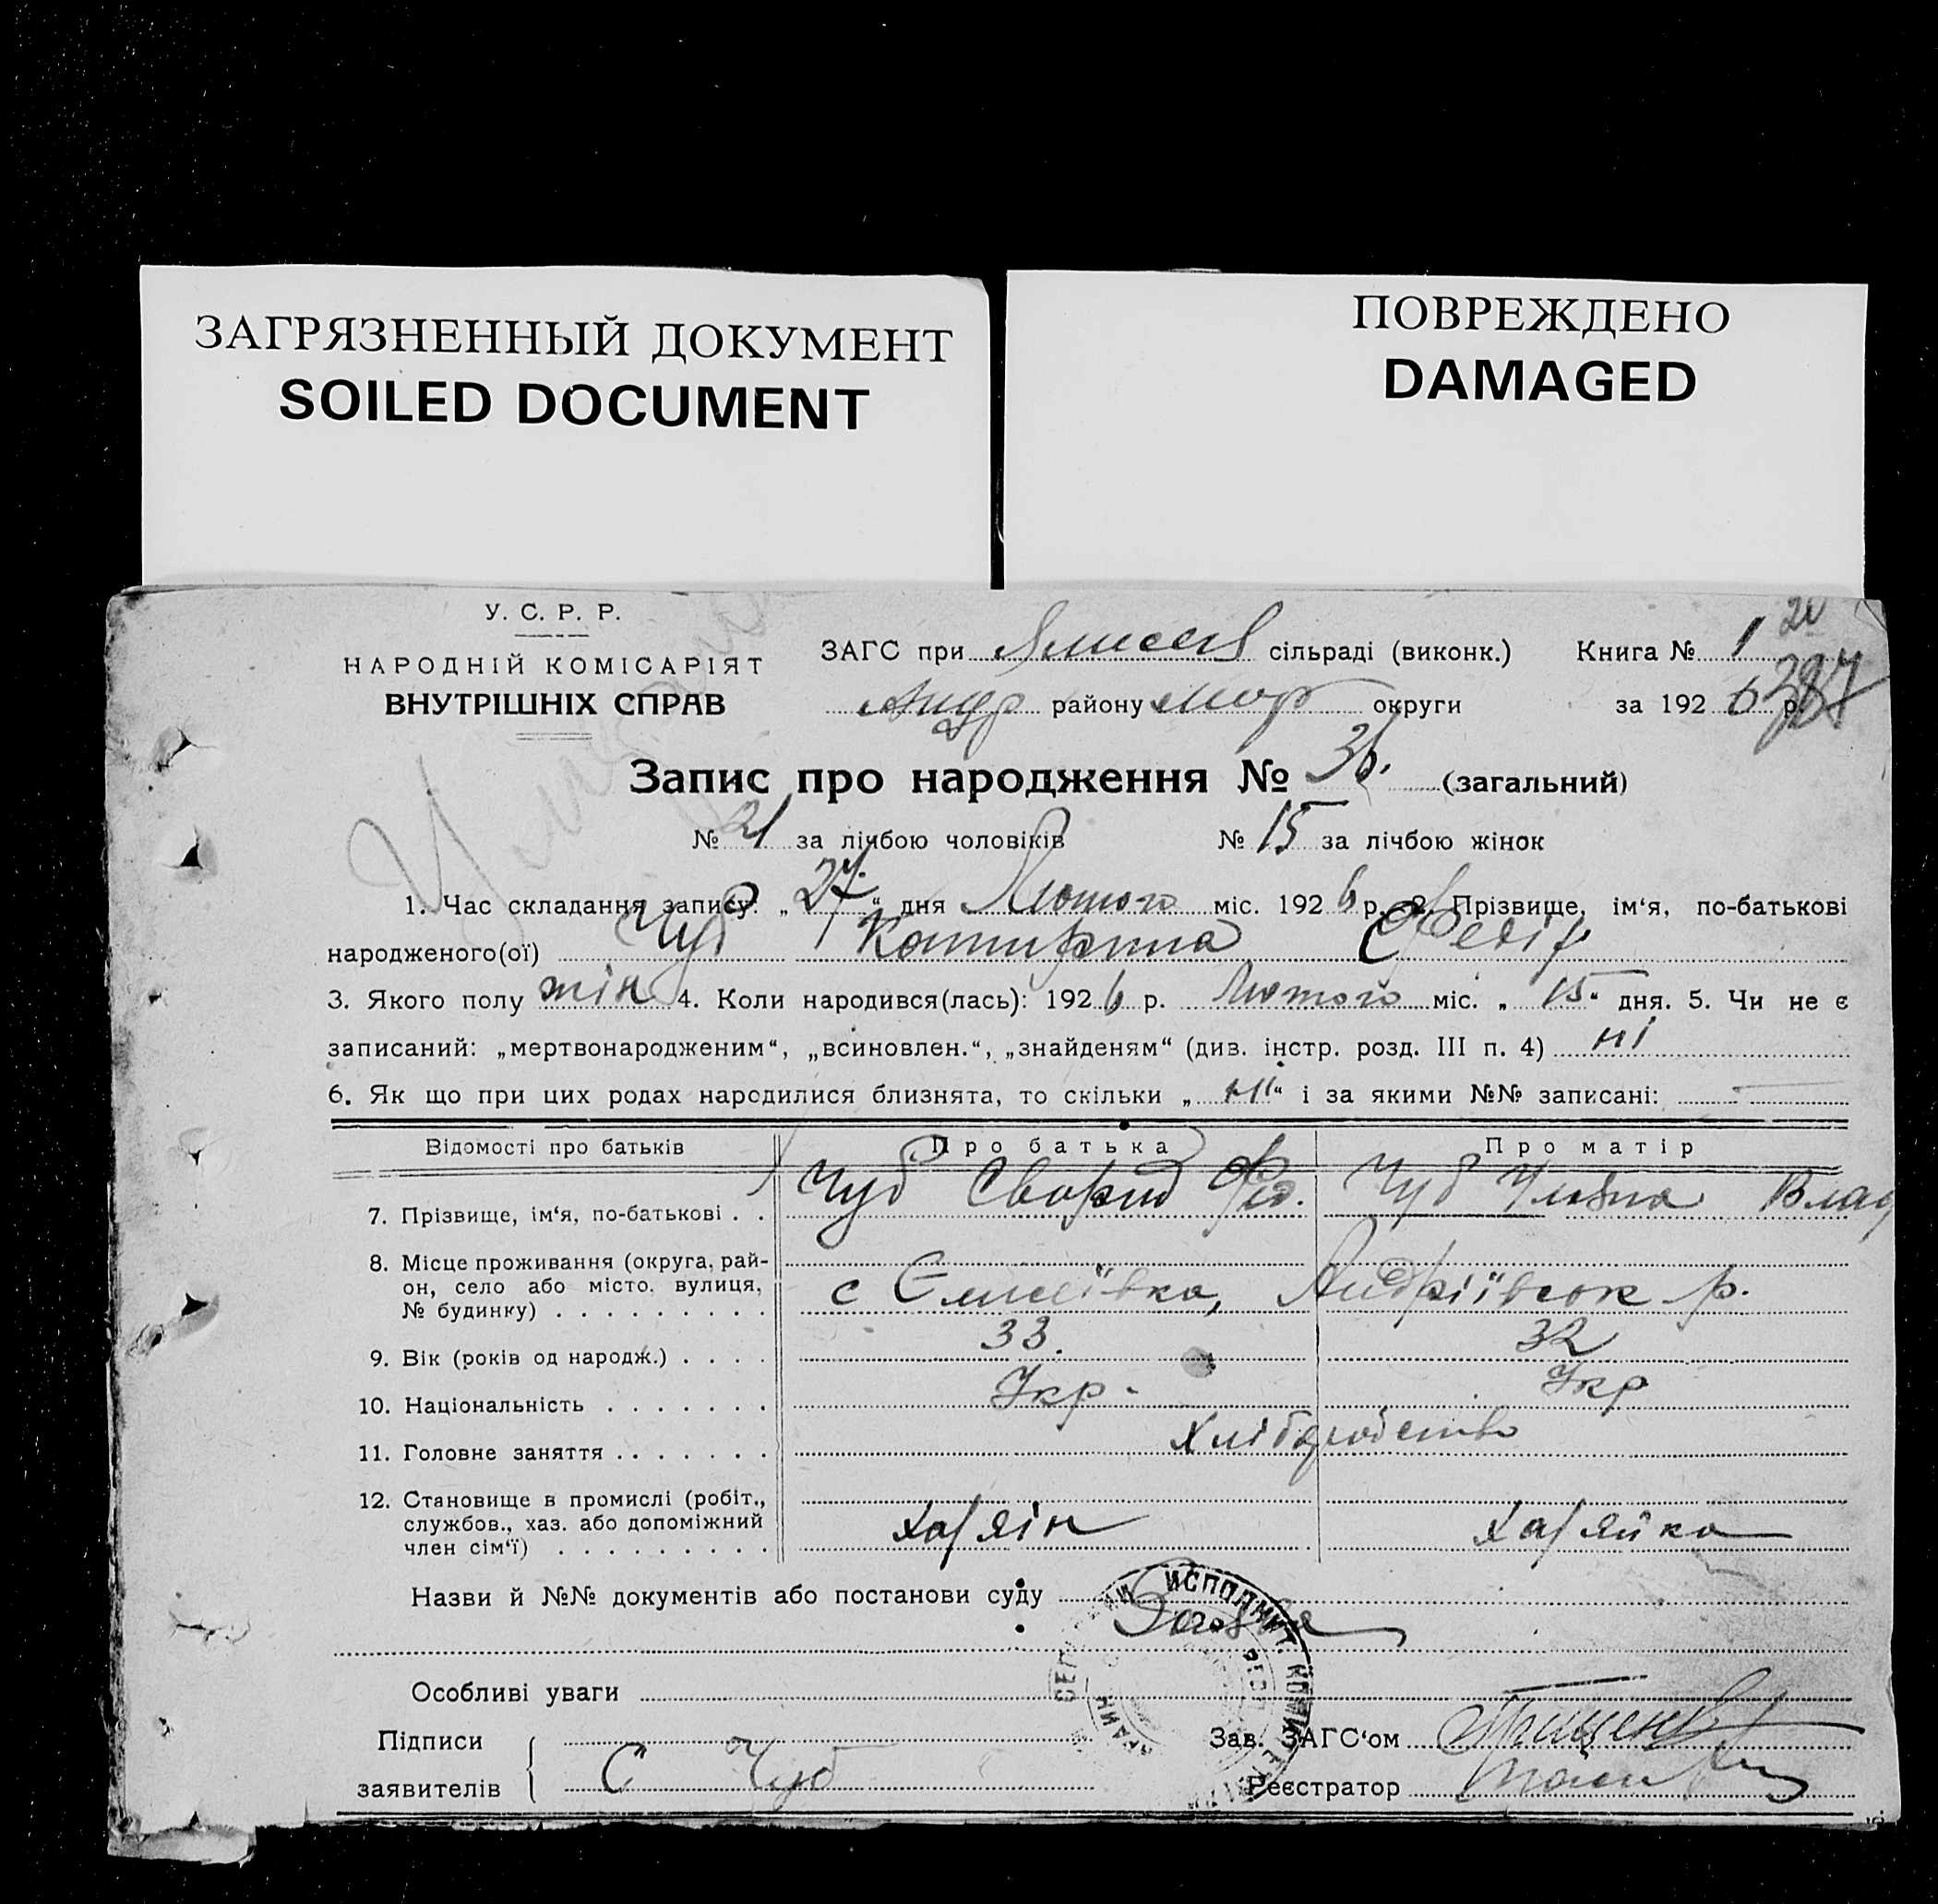 ЗАГРЯЗНЕННЫЙ ДОКУМЕНТ
SOILED DOCUMENT
ПОВРЕЖДЕНО
DAMAGED
У. С. Р. Р.
НАРОДНІЙ КОМІСАРІЯТ
ВНУТРІШНІХ СПРАВ
ЗАГС при сільраді (виконк.) Книга № 1
Андр району округи за 1926 р.
Запис про народження № 36. (загальний)
№ 21 за лічбою чоловіків № 15 за лічбою жінок
1. Час складання запису: „27“ дня Лютого міс. 1926 р. 2. Прізвище, ім‘я, по-батькові
народженого(ої) Чуб Катирина
3. Якого полу жін 4. Коли народився(лась): 1926 р. Лютого міс. „15“ дня. 5. Чи не є
записаний: „мертвонародженим“, „всиновлен.“, „знайденям“ (див. інстр. розд. III п. 4) ні
6. Як що при цих родах народилися близнята, то скільки „ні“ і за якими №№ записані: —
Відомості про батьків Про батька Про матір
7. Прізвище, ім‘я, по-батькові . . Чуб Свирид Фед. Чуб Уляна Влад
8. Місце проживання (округа, рай-
он, село або місто, вулиця,
№ будинку) . . . . . . . . . с Єлисеївка, Андріївськ р.
9. Вік (років од народж.) . . . . 33. 32
10. Національність . . . . . . . Укр. Укр
11. Головне заняття . . . . . . . Хліборобство
12. Становище в промислі (робіт.,
службов., хаз. або допоміжний
член сім‘ї) . . . . . . . . . Хазяін Хазяйка
Назви й №№ документів або постанови суду Заява
Особливі уваги
Підписи
заявителів С Чуб
Зав. ЗАГС‘ом
Реєстратор
ИСПОЛНИТ